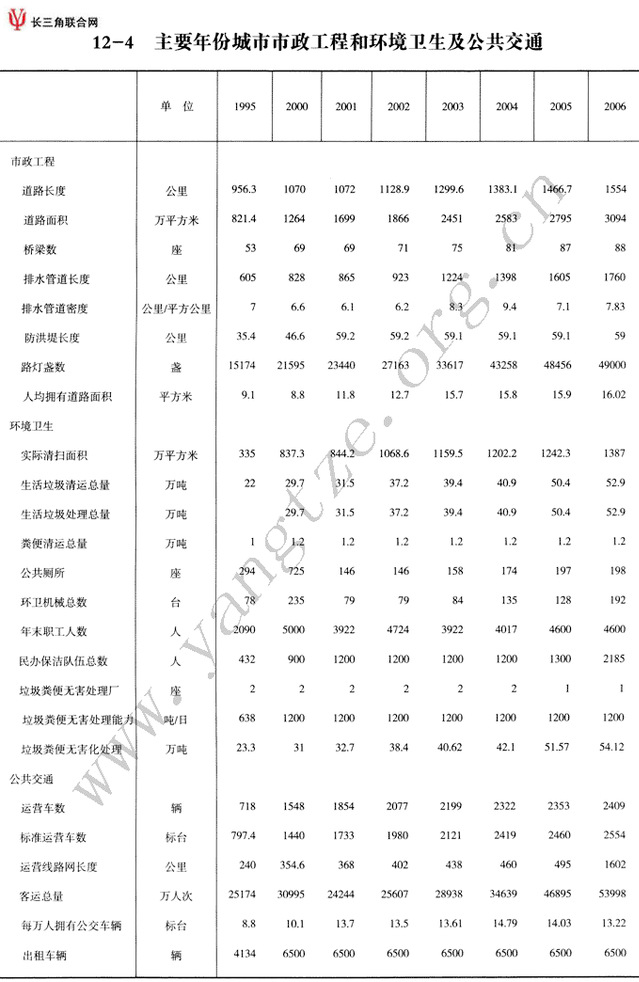 长三角联合网
12-4 主要年份城市市政工程和环境卫生及公共交通
单 位 1995 2000 2001 2002 2003 2004 2005 2006
市政工程
道路长度 公里 956.3 1070 1072 1128.9 1299.6 1383.1 1466.7 1554
道路面积 万平方米 821.4 1264 1699 1866 2451 2583 2795 3094
桥梁数 座 53 69 69 71 75 81 87 88
排水管道长度 公里 605 828 865 923 1224 1398 1605 1760
排水管道密度 公里/平方公里 7 6.6 6.1 6.2 8.3 9.4 7.1 7.83
防洪堤长度 公里 35.4 46.6 59.2 59.2 59.1 59.1 59.1 59
路灯盏数 盏 15174 21595 23440 27163 33617 43258 48456 49000
人均拥有道路面积 平方米 9.1 8.8 11.8 12.7 15.7 15.8 15.9 16.02
环境卫生
实际清扫面积 万平方米 335 837.3 844.2 1068.6 1159.5 1202.2 1242.3 1387
生活垃圾清运总量 万吨 22 29.7 31.5 37.2 39.4 40.9 50.4 52.9
生活垃圾处理总量 万吨 29.7 31.5 37.2 39.4 40.9 50.4 52.9
粪便清运总量 万吨 1 1.2 1.2 1.2 1.2 1.2 1.2 1.2
公共厕所 座 294 725 146 146 158 174 197 198
环卫机械总数 台 78 235 79 79 84 135 128 192
年末职工人数 人 2090 5000 3922 4724 3922 4017 4600 4600
民办保洁队伍总数 人 432 900 1200 1200 1200 1200 1300 2185
垃圾粪便无害处理厂 座 2 2 2 2 2 2 1 1
垃圾粪便无害处理能力 吨/日 638 1200 1200 1200 1200 1200 1200 1200
垃圾粪便无害化处理 万吨 23.3 31 32.7 38.4 40.62 42.1 51.57 54.12
公共交通
运营车数 辆 718 1548 1854 2077 2199 2322 2353 2409
标准运营车数 标台 797.4 1440 1733 1980 2121 2419 2460 2554
运营线路网长度 公里 240 354.6 368 402 438 460 495 1602
客运总量 万人次 25174 30995 24244 25607 28938 34639 46895 53998
每万人拥有公交车辆 标台 8.8 10.1 13.7 13.5 13.61 14.79 14.03 13.22
出租车辆 辆 4134 6500 6500 6500 6500 6500 6500 6500
www.yangtze.org.cn